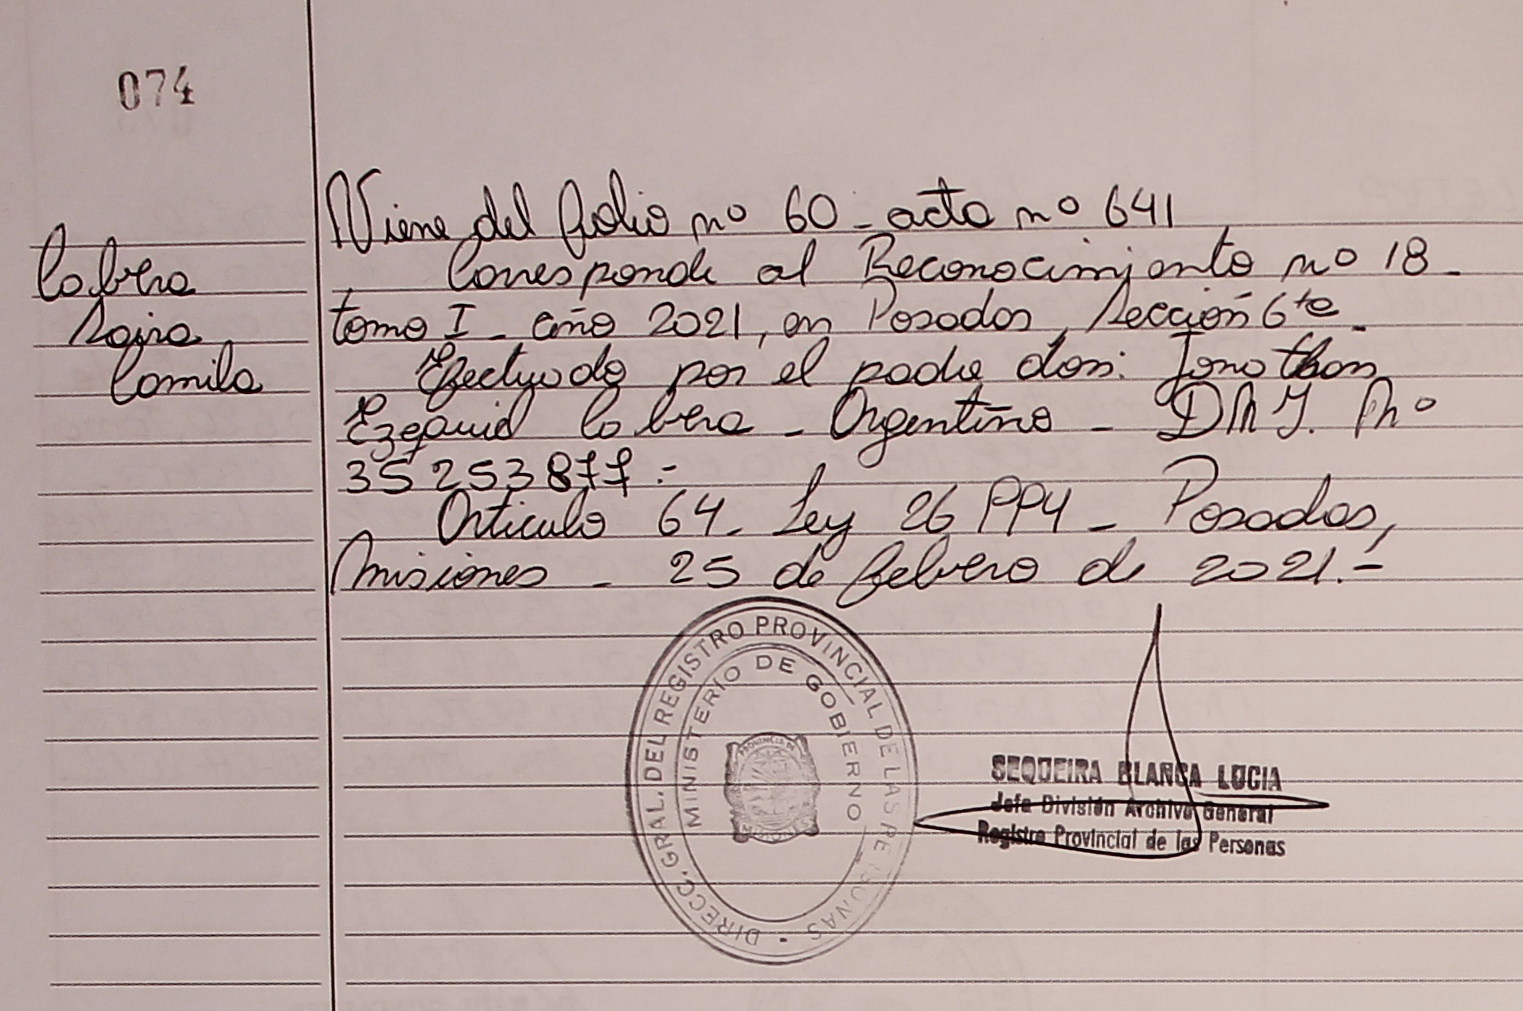 074
Viene del folio nº 60 - acta nº 641
Cabrera
Naira
Camila
Corresponde al Reconocimiento nº 18 -
tomo I - año 2021, en Posadas, Sección 6ta -
Efectuado por el padre don: Jonathan
Ezequiel Cabrera - Argentino - DNI. Nº
35253877 .-
Articulo 64 - Ley 26994 - Posadas,
Misiones - 25 de febrero de 2021.-
DIRECC. GRAL. DEL REGISTRO PROVINCIAL DE LAS PERSONAS
MINISTERIO DE GOBIERNO
PROVINCIA DE
MISIONES
SEQUEIRA BLANCA LUCIA
Jefa División Archivo General
Registro Provincial de las Personas